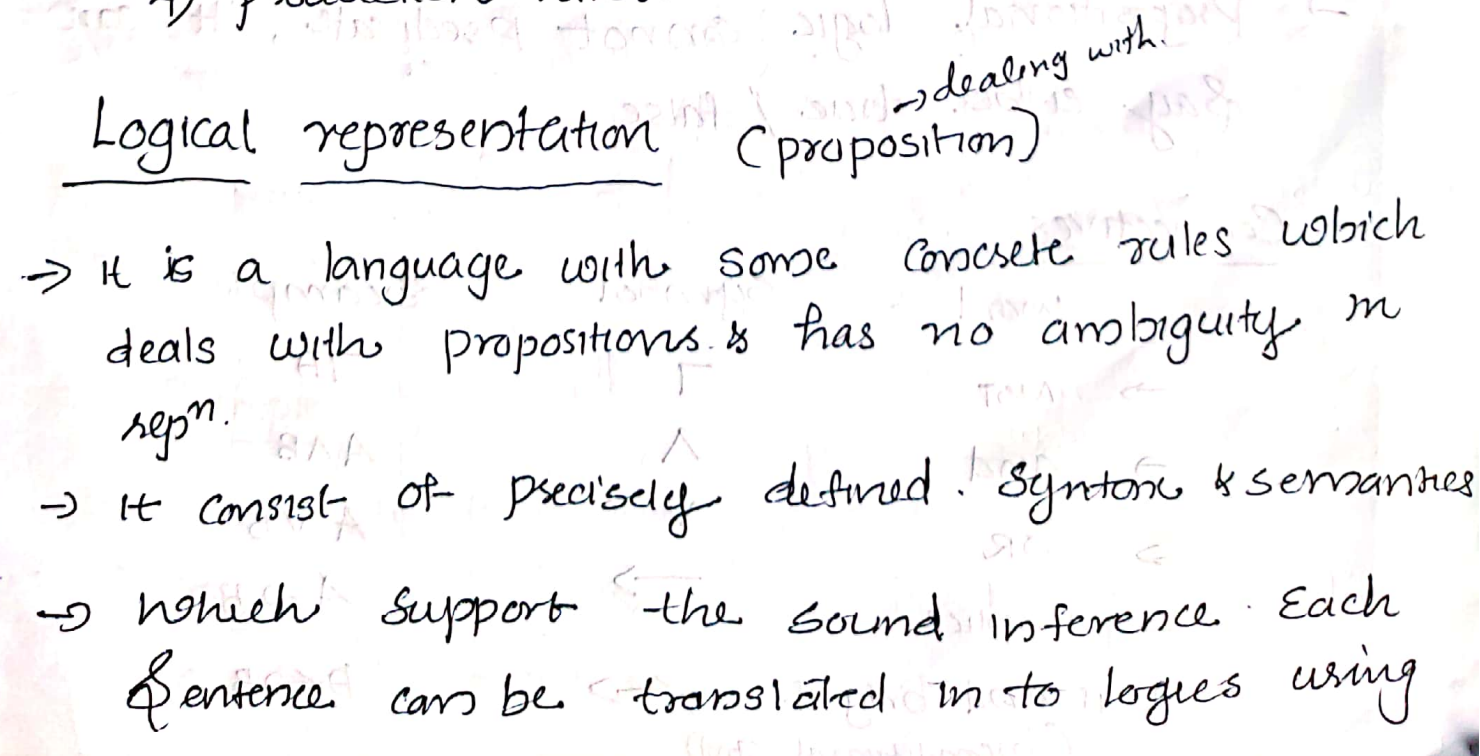 → dealing with.
Logical representation (proposition)
→ It is a language with some concrete rules which
deals with propositions. & has no ambiguity in
repⁿ.
→ It consist of precisely defined. Syntax & semantics
→ which support the sound inference. Each
Sentence can be translated in to logics using